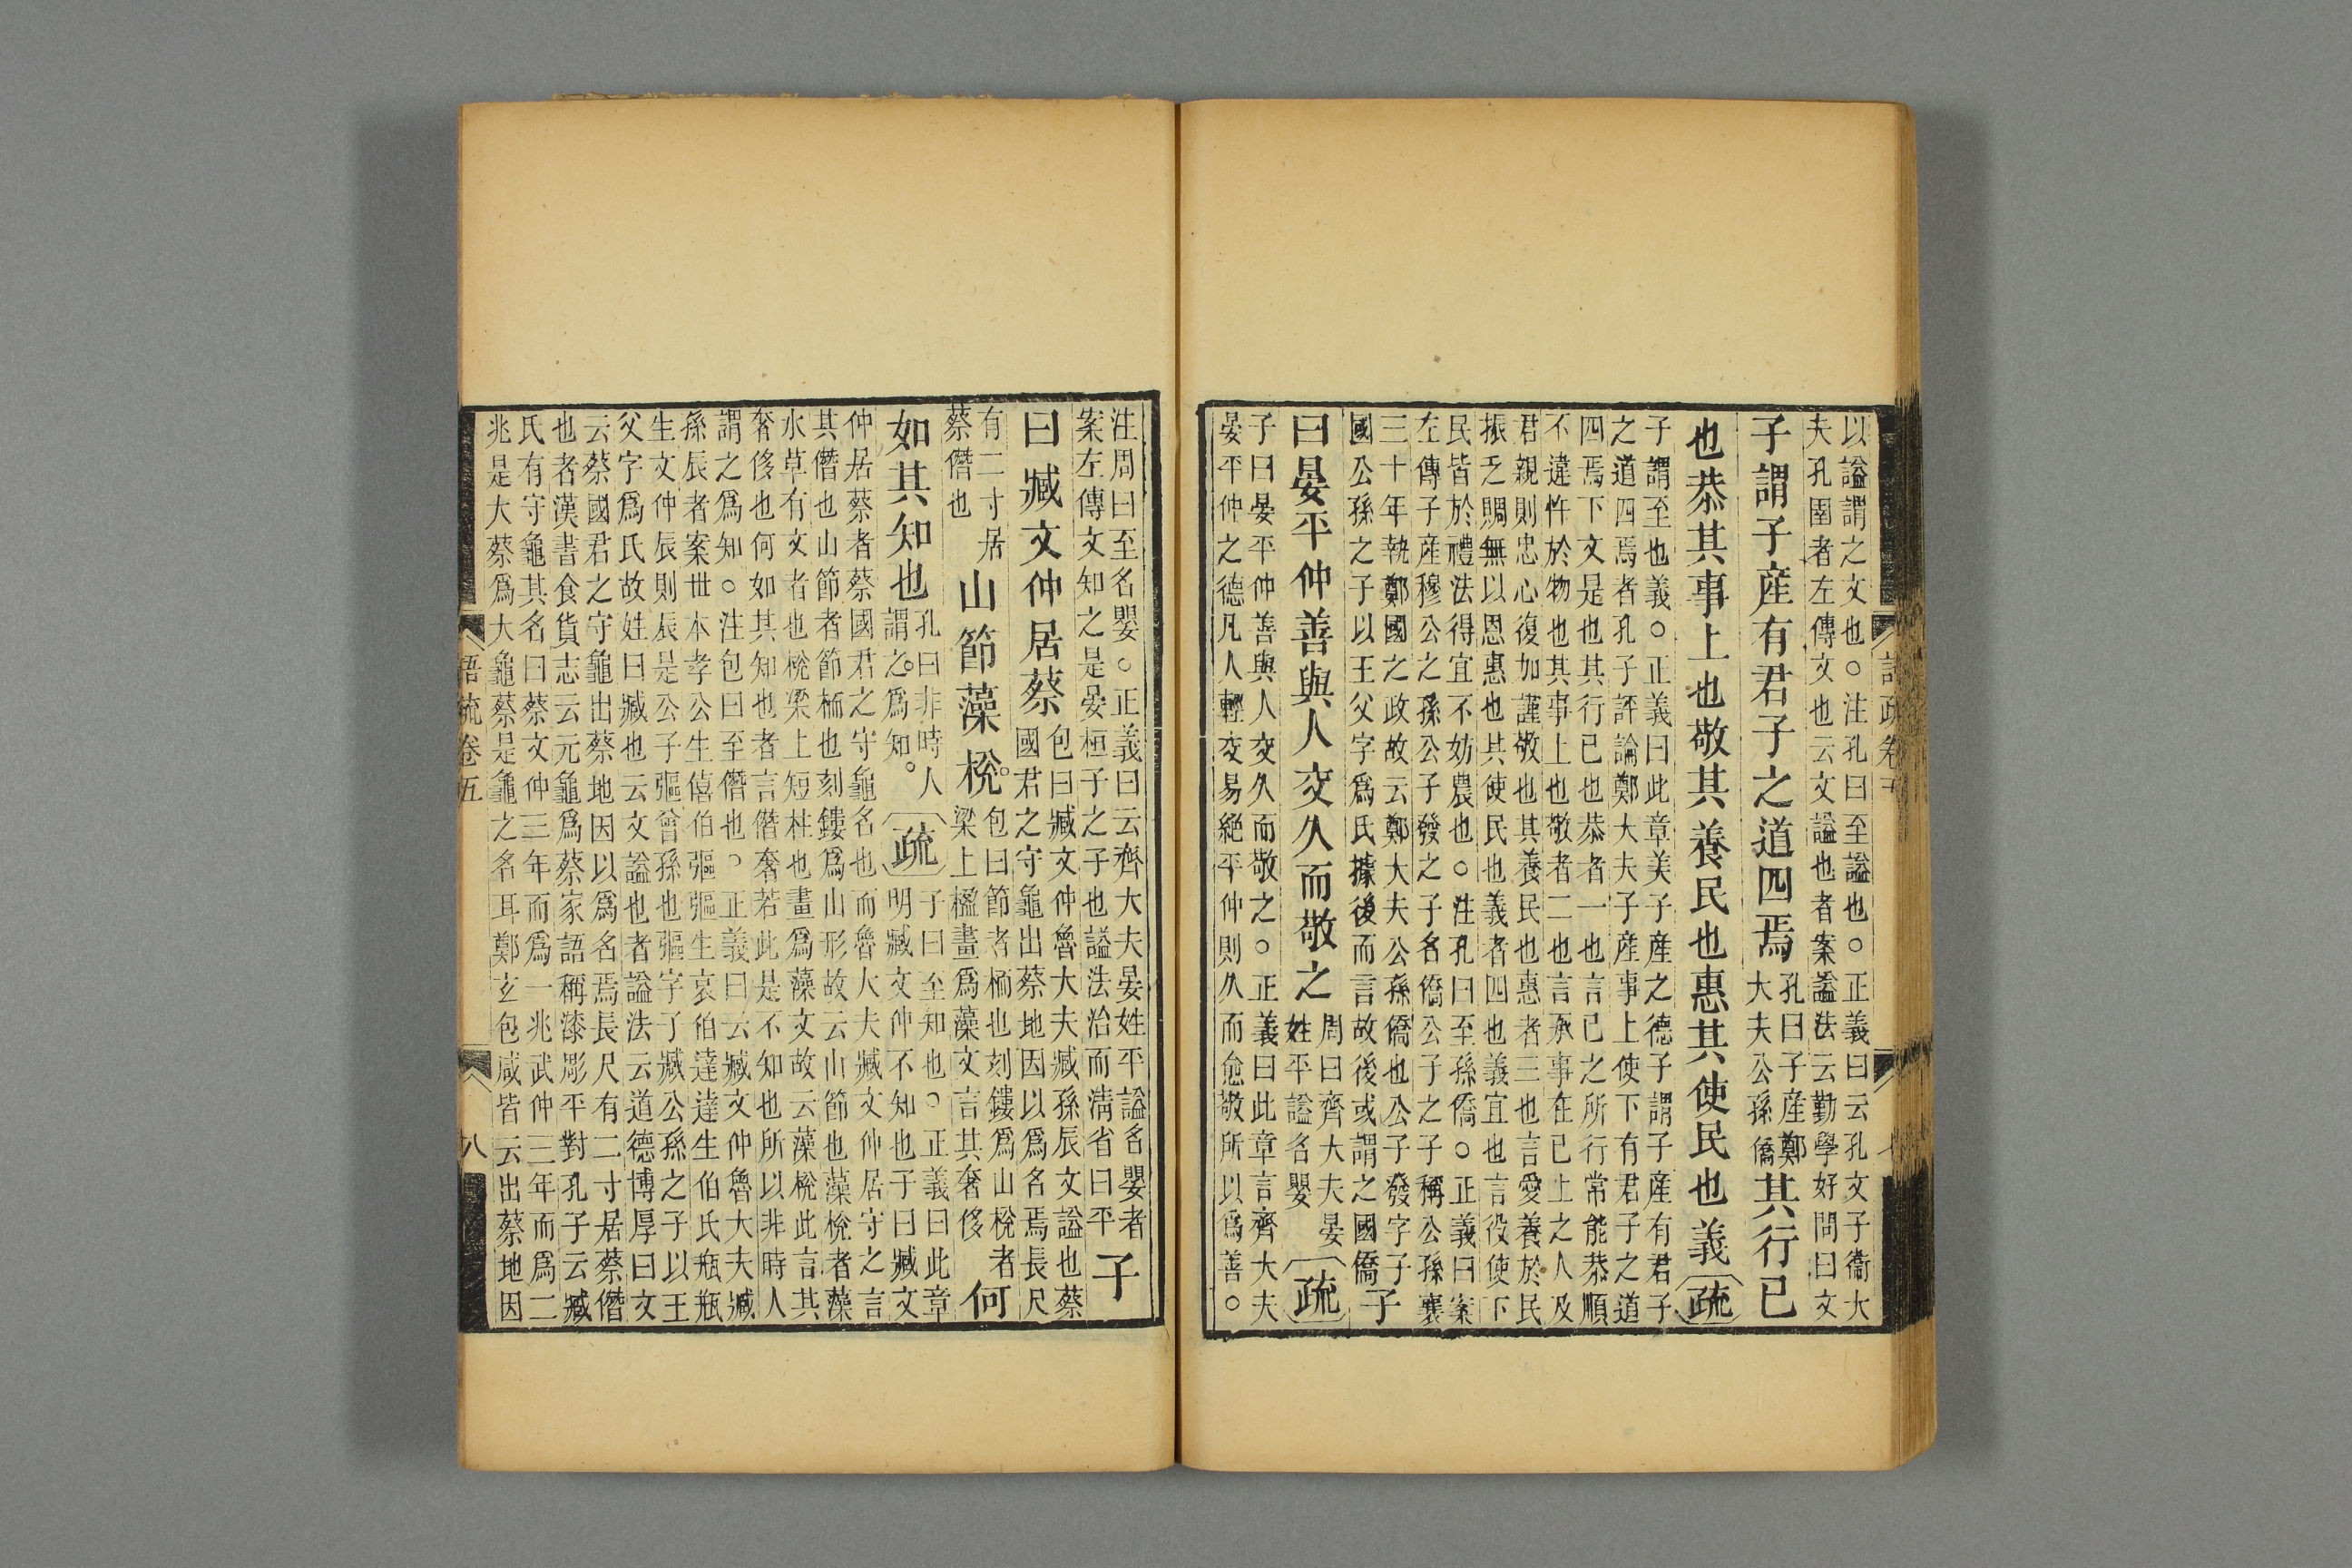 以謚謂之文也○注孔曰至謚也○正義曰云孔文子衞大
夫孔圉者左傳文也云文謚也者案謚法云勤學好問曰文
子謂子產有君子之道四焉孔曰子產鄭大夫公孫僑其行己
也恭其事上也敬其養民也惠其使民也義疏
子謂至也義○正義曰此章美子產之德子謂子產有君子
之道四焉者孔子評論鄭大夫子產事上使下有君子之道
四焉下文是也其行己也恭者一也言己之所行常能恭順
不違忤於物也其事上也敬者二也言承事在己上之人及
君親則忠心復加謹敬也其養民也惠者三也言愛養於民
振乏賙無以恩惠也其使民也義者四也義宜也言役使下
民皆於禮法得宜不妨農也○注孔曰至孫僑○正義曰案
左傳子產穆公之孫公子發之子名僑公子之子稱公孫襄
三十年執鄭國之政故云鄭大夫公孫僑也公子發字子
國公孫之子以王父字爲氏據後而言故後或謂之國僑子
曰晏平仲善與人交久而敬之周曰齊大夫晏姓平謚名嬰疏
子曰晏平仲善與人交久而敬之○正義曰此章言齊大夫
晏平仲之德凡人輕交易絕平仲則久而愈敬所以爲善○
注周曰至名嬰○正義曰云齊大夫晏姓平謚名嬰者
案左傳文知之是晏桓子之子也謚法治而清省曰平子
曰臧文仲居蔡包曰臧文仲魯大夫臧孫辰文謚也蔡國君之守龜出蔡地因以爲名焉長尺
有二寸居蔡僭也山節藻梲包曰節者栭也刻鏤爲山梲者梁上楹畫爲藻文言其奢侈何
如其知也孔曰非時人謂之爲知疏子曰至知也○正義曰此章明臧文仲不知也子曰臧文
仲居蔡者蔡國君之守龜名也而魯大夫臧文仲居守之言
其僭也山節者節栭也刻鏤爲山形故云山節也藻梲者藻
水草有文者也梲梁上短柱也畫爲藻文故云藻梲此言其
奢侈也何如其知也者言僭奢若此是不知也所以非時人
謂之爲知○注包曰至僭也○正義曰云臧文仲魯大夫臧
孫辰者案世本孝公生僖伯彄彄生哀伯達達生伯氏瓶瓶
生文仲辰則辰是公子彄曾孫也彄字子臧公孫之子以王
父字爲氏故姓曰臧也云文謚也者謚法云道德博厚曰文
云蔡國君之守龜出蔡地因以爲名焉長尺有二寸居蔡僭
也者漢書食貨志云元龜爲蔡家語稱漆彫平對孔子云臧
氏有守龜其名曰蔡文仲三年而爲一兆武仲三年而爲二
兆是大蔡爲大龜蔡是龜之名耳鄭玄包咸皆云出蔡地因
語疏卷五 八